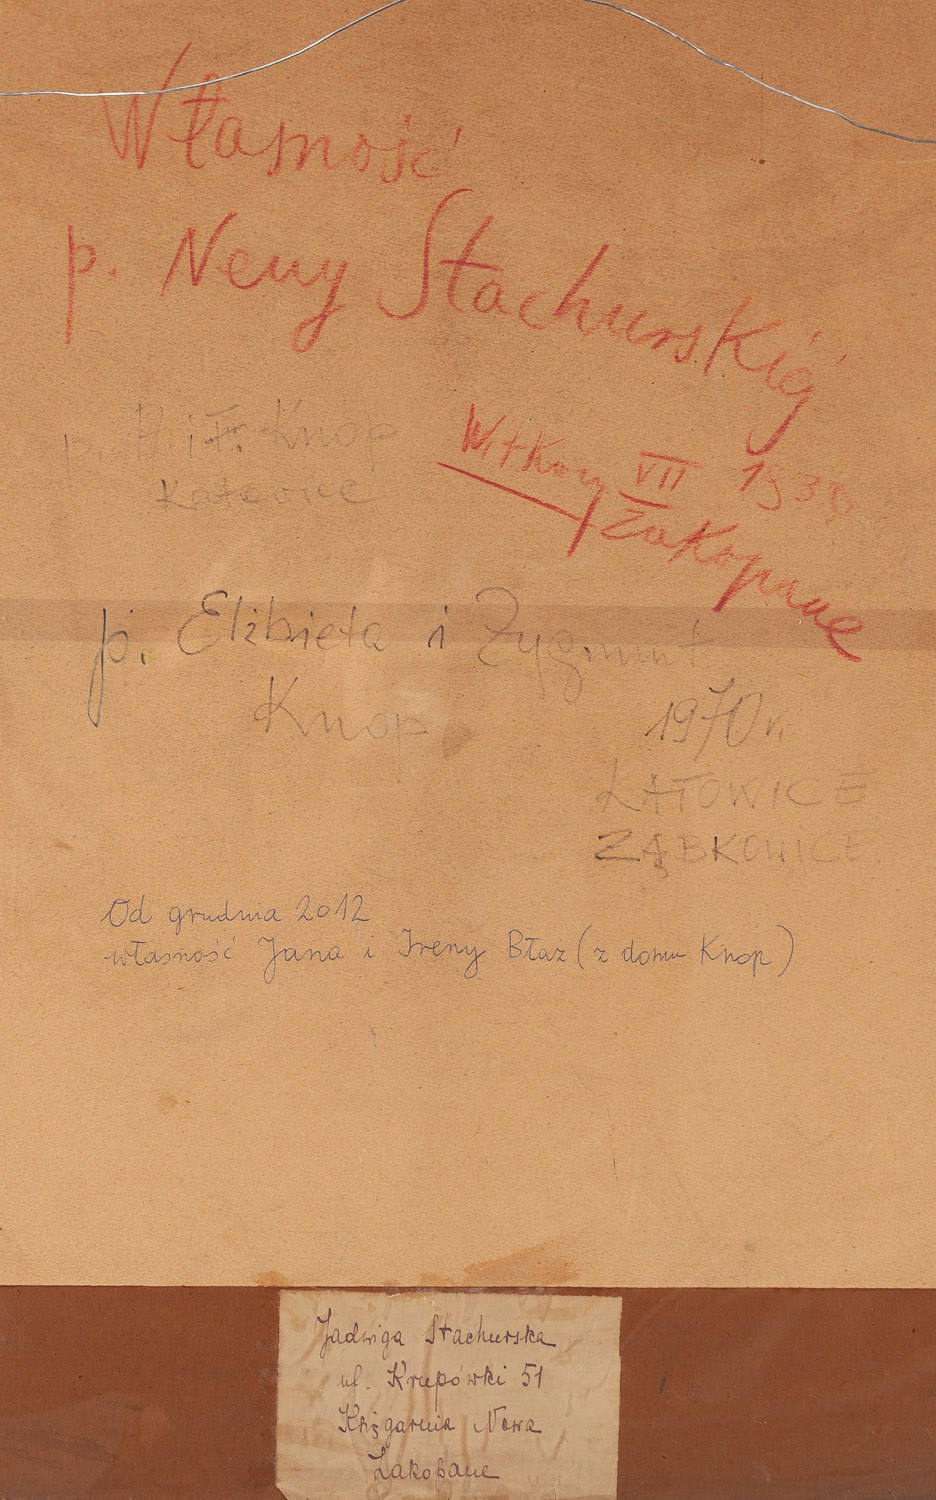 Własność
p. Neny Stachurskiéj
Witkacy VII 193
Zakopane
p. H. i F. Knop
Katowice
p. Elżbieta i Zygmunt
Knop
1970 r.
KATOWICE
ZĄBKOWICE
Od grudnia 2012
własność Jana i Ireny Błaz (z domu Knop)
Jadwiga Stachurska
ul. Krupówki 51
Księgarnia Nowa
Zakopane